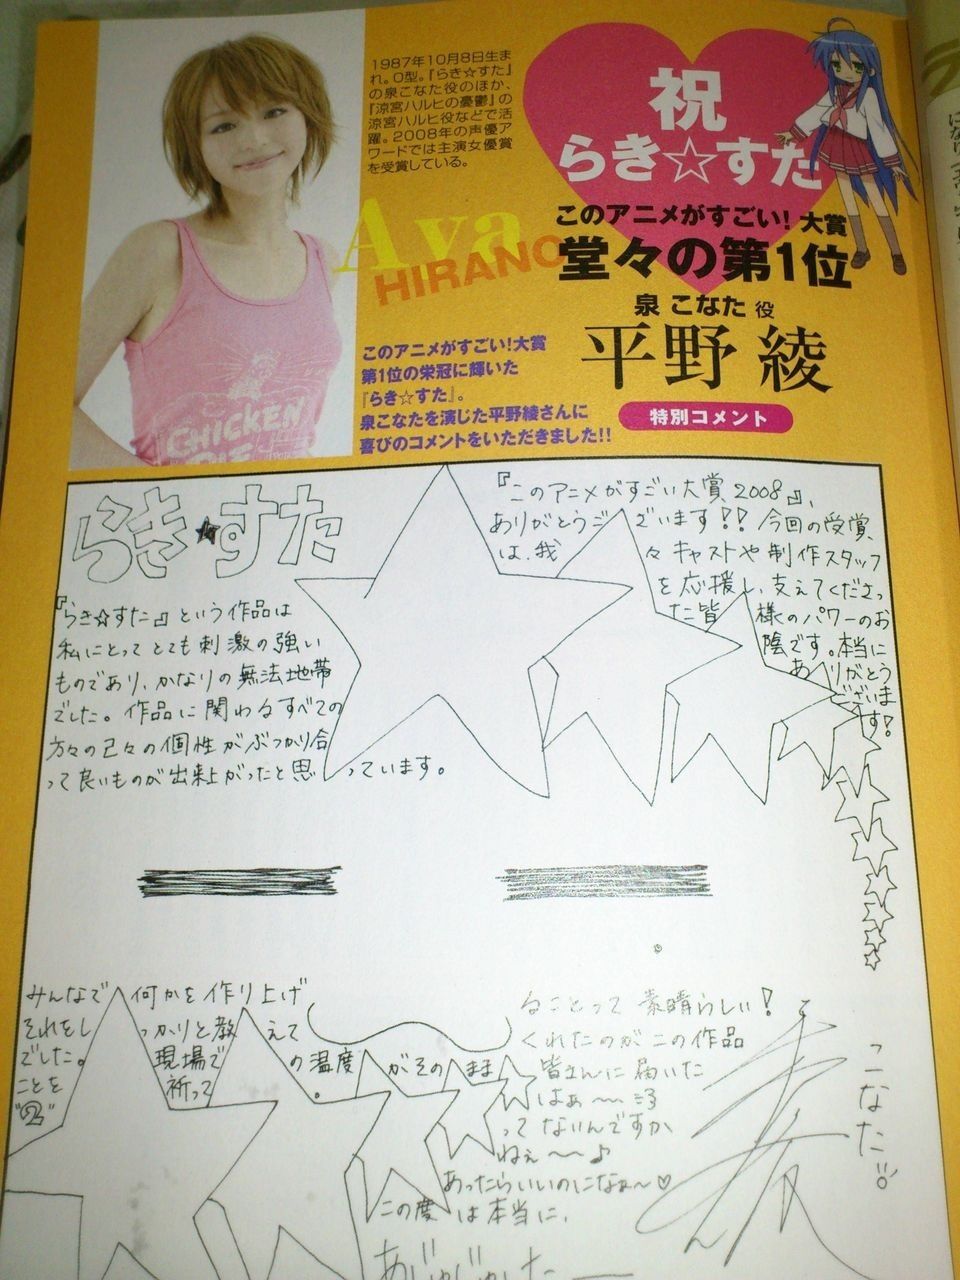 1987年10月8日生ま
れ。O型。『らき☆すた』
の泉こなた役のほか、
『涼宮ハルヒの憂鬱』の
涼宮ハルヒ役などで活
躍。2008年の声優ア
ワードでは主演女優賞
を受賞している。
祝
らき☆すた
このアニメがすごい!大賞
堂々の第1位
Aya
HIRANO
泉 こなた 役
平野 綾
特別コメント
このアニメがすごい!大賞
第1位の栄冠に輝いた
『らき☆すた』。
泉こなたを演じた平野綾さんに
喜びのコメントをいただきました!!
CHICKEN
らき★すた
『このアニメがすごい大賞2008』、
ありがとうございます!!今回の受賞
は、我々キャストや制作スタッフ
を応援し、支えてくださっ
た皆様のパワーのお
陰です。本当に
ありがとう
ございま
す!
『らき☆すた』という作品は
私にとってとても刺激の強い
ものであり、かなりの無法地帯
でした。作品に関わるすべての
方々の己々の個性がぶつかり合
って良いものが出来上がったと思っています。
みんなで何かを作り上げることって素晴らしい!
それをしっかりと教えてくれたのがこの作品
でした。現場の温度がそのまま皆さんに届いた
ことを祈って。
はぁ〜〜
"②"ってないんですか
ねぇ〜〜♪
あったらいいのになぁ〜♡
この度は本当に、
こなた